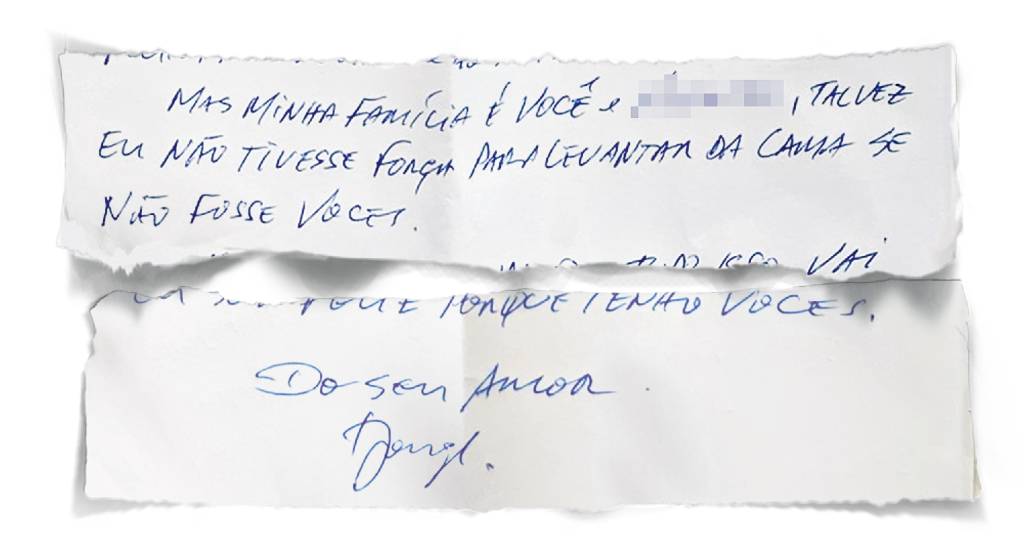 MAS MINHA FAMÍLIA É VOCÊ e , TALVEZ
EU NÃO TIVESSE FORÇA PARA LEVANTAR DA CAMA SE
NÃO FOSSE VOCES.
VAI
PORQUE TENHO VOCES.
DO SEU AMOR.